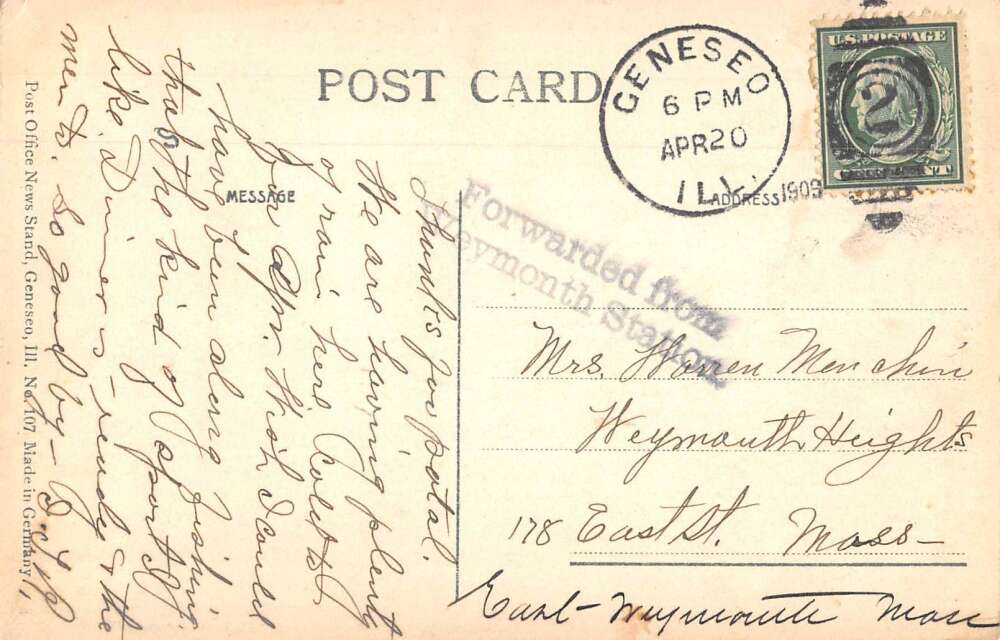 POST CARD
GENESEO
6 PM
APR 20
1909
ILL.
U.S. POSTAGE
2
MESSAGE
ADDRESS
Forwarded from
Weymouth Station
Thanks for postal.
We are having plenty
of rain here &
for Apr. Wish I could
have been along fishing
that the kind of sport I
like. Dinner is ready & the
men to. So good by –
Mrs. Warren Menchin
Weymouth Heights
178 East St. Mass –
East – Weymouth Mass
Post Office News Stand, Geneseo, Ill. No. 107 Made in Germany